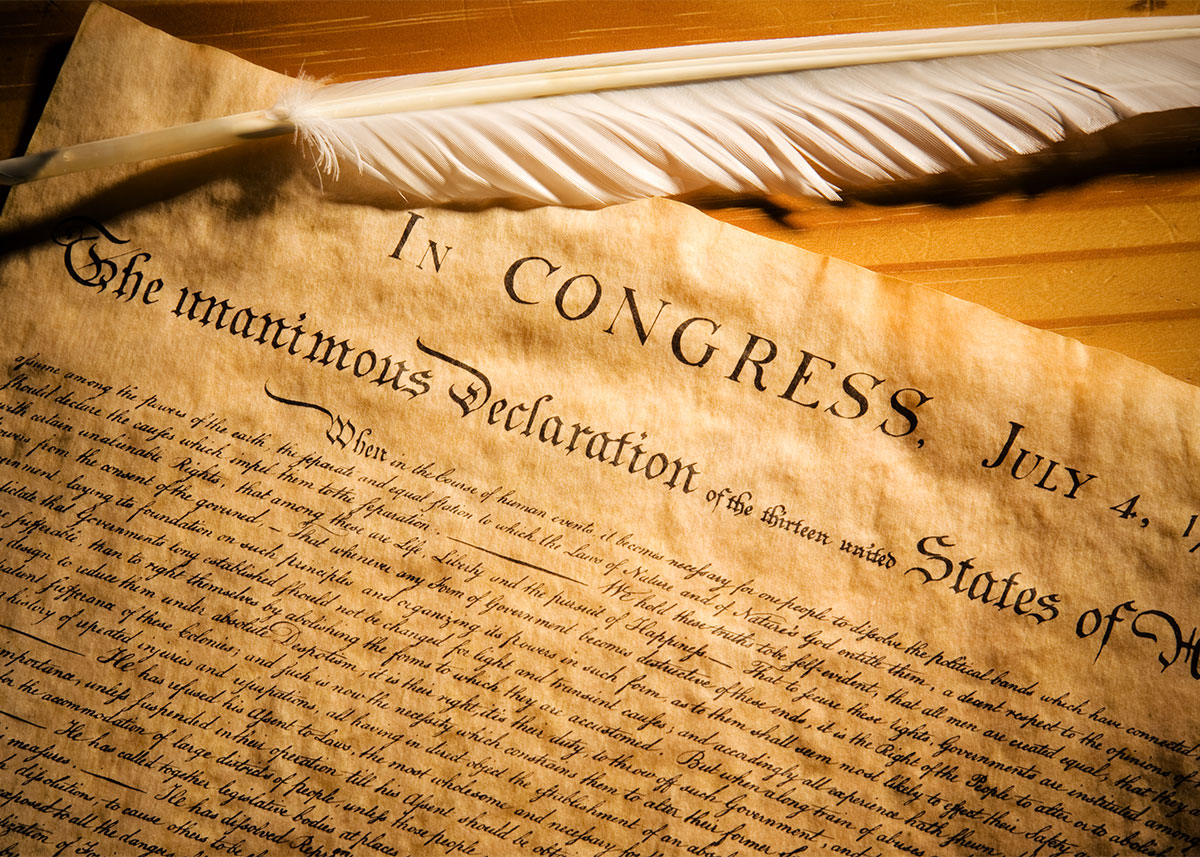 In CONGRESS, July 4, 17
The unanimous Declaration of the thirteen united States of
When in the Course of human events, it becomes necessary for one people to dissolve the political bands which have connected
assume among the powers of the earth, the separate and equal station to which the Laws of Nature and of Nature's God entitle them, a decent respect to the opinions of
should declare the causes which impel them to the separation. — We hold these truths to be self-evident, that all men are created equal, that they
with certain unalienable Rights, that among these are Life, Liberty and the pursuit of Happiness — That to secure these rights, Governments are instituted among
powers from the consent of the governed, — That whenever any Form of Government becomes destructive of these ends, it is the Right of the People to alter or to abolish
ernment, laying its foundation on such principles and organizing its powers in such form, as to them shall seem most likely to effect their Safety
dictate that Governments long established should not be changed for light and transient causes; and accordingly all experience hath shewn
sufferable, than to right themselves by abolishing the forms to which they are accustomed. But when a long train of abuses
design to reduce them under absolute Despotism, it is their right, it is their duty, to throw off such Government, and
patient sufferance of these Colonies; and such is now the necessity which constrains them to alter their former
history of repeated injuries and usurpations, all having in direct object the establishment of an abso
He has refused his Assent to Laws, the most wholesome and necessary for
importance, unless suspended in their operation till his Assent should be obt
the accommodation of large districts of people, unless those people
He has called together legislative bodies at places
measures. He has dissolved Rep
dissolutions, to cause others to be
exposed to all the dangers
lization of